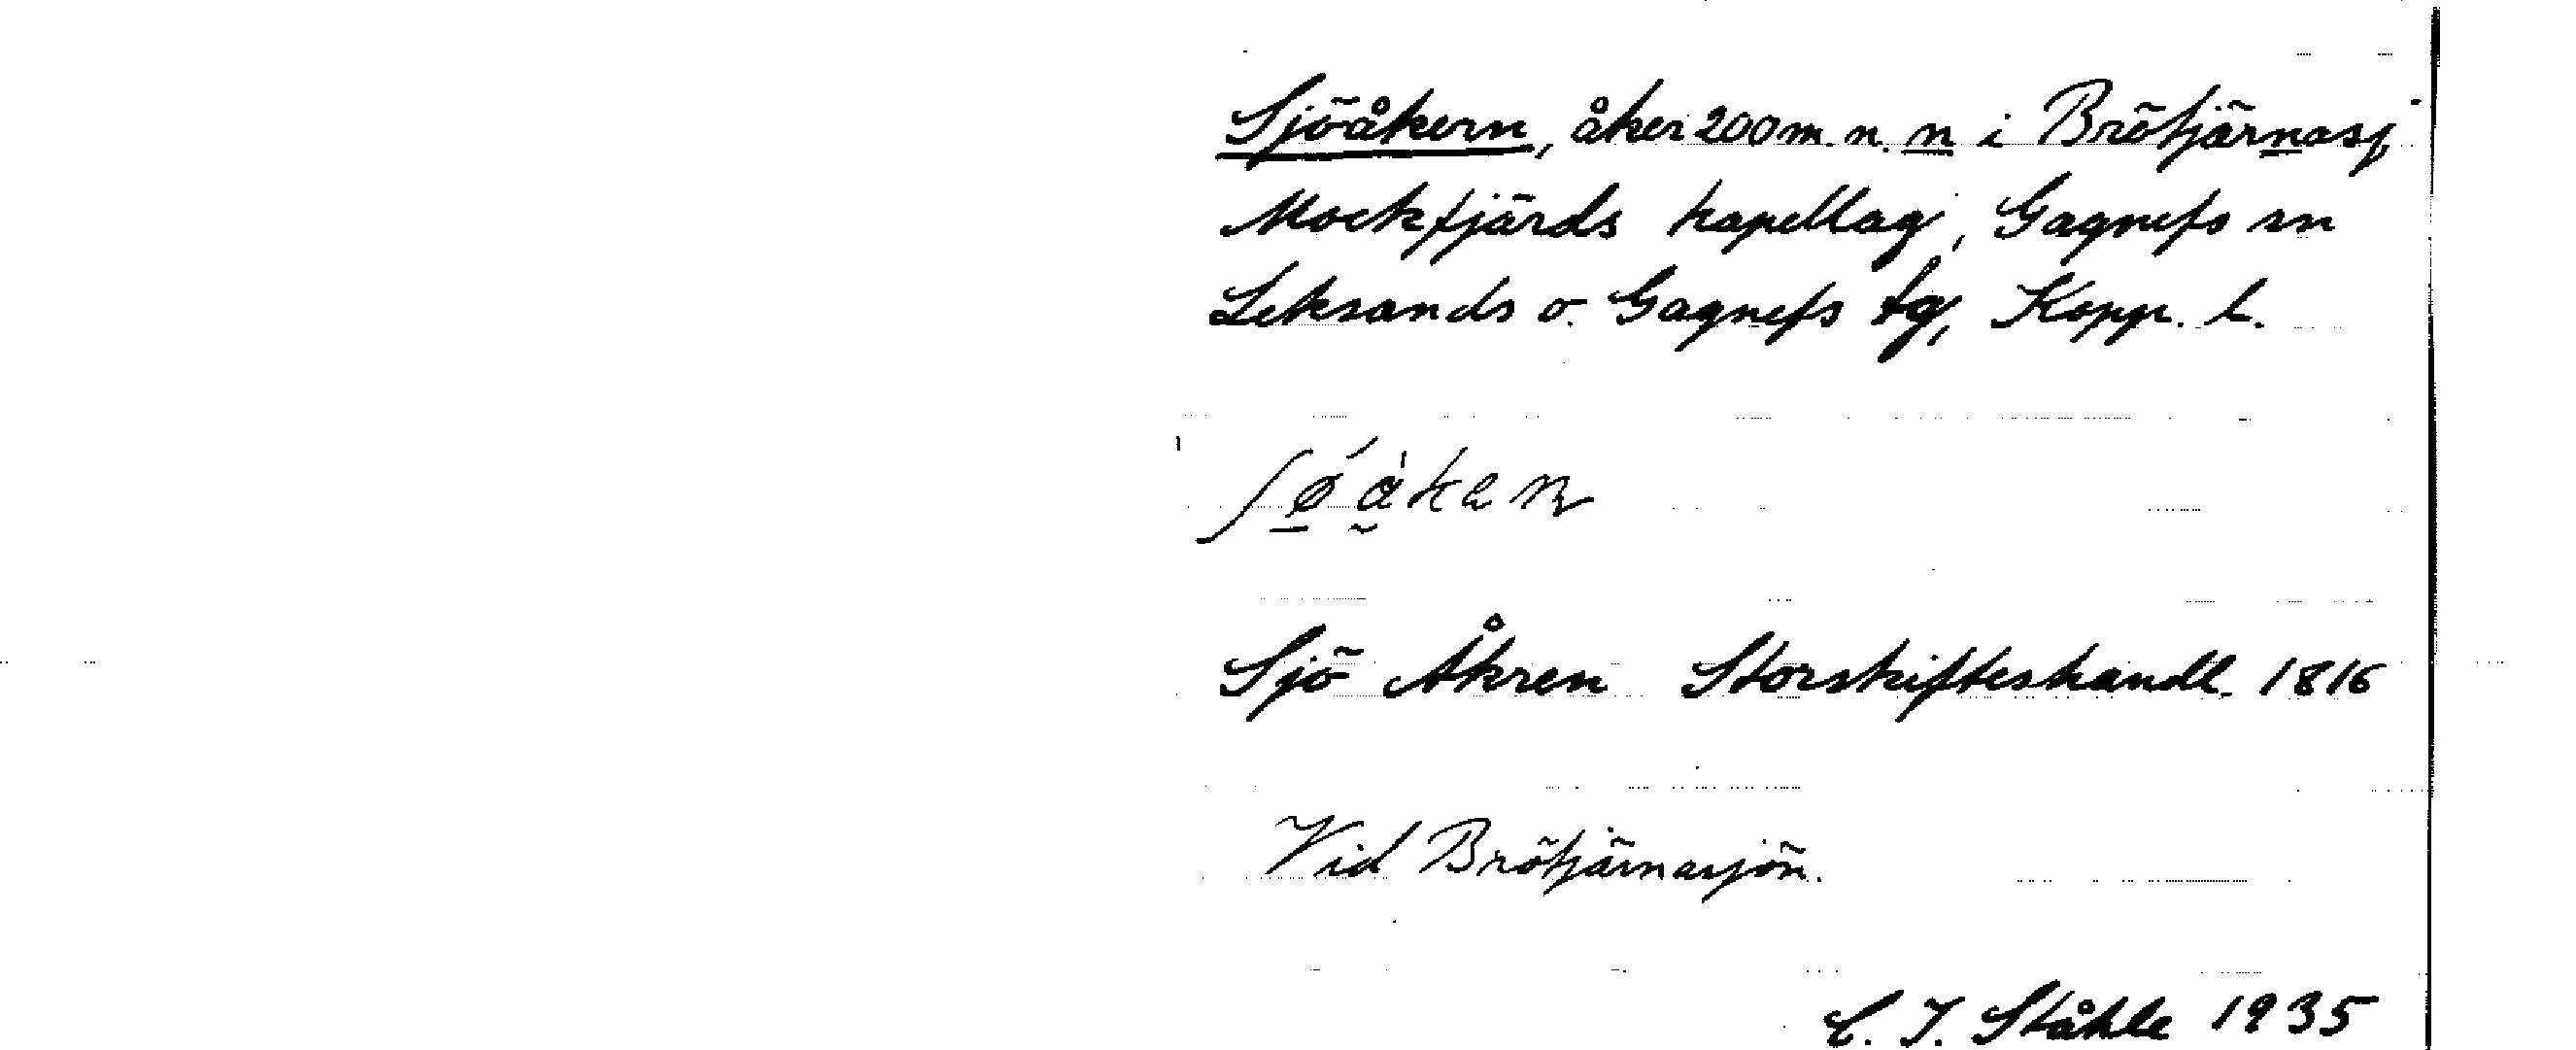 Sjöåkern, åker 200 m n. n i Brötjärnasj
Mockfjärds kapellag, Gagnefs sn
Leksands o. Gagnefs tg, Kopp. l.
ʃø´àkaɳ
Sjö Åkren Storskifteshandl. 1816
Vid Brötjärnasjön.
C. I. Ståhle 1935